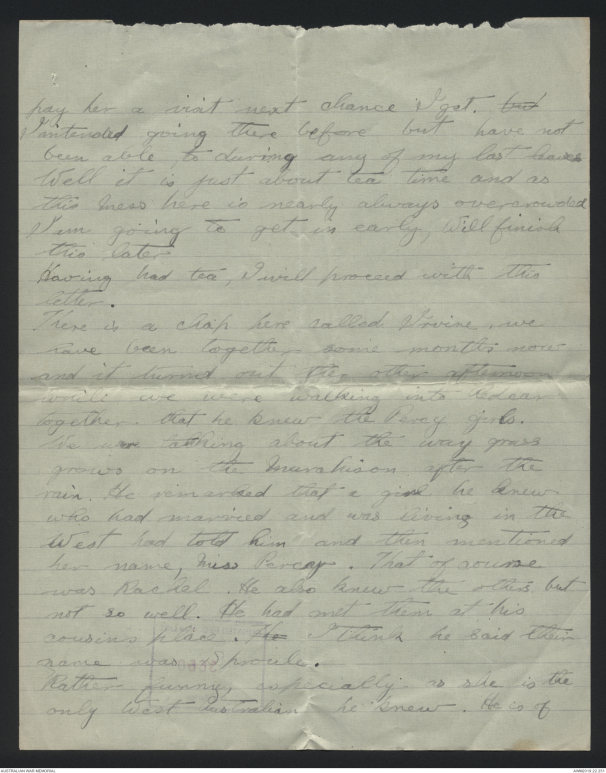 pay her a visit next chance I get. but
I intended going there before but have not
been able to during any of my last leaves
Well it is just about tea time and as
this mess here is nearly always overcrowded
I am going to get in early, Will finish
this later
Having had tea, I will proceed with this
letter.
There is a chap here called Irvine, we
have been together some months now
and it turned out the other afternoon
while we were walking into
together. that he knew the Percy girls.
We were talking about the way grass
grows on the Murchison after the
rain. He remarked that a girl he knew
who had married and was living in the
West had told him and then mentioned
her name, Miss Percy. That of course
was Rachel. He also knew the others but
not so well. He had met them at his
cousins place. He I think he said their
name was Sproule.
Rather funny, especially as she is the
only West Australian he knew. He is of
AUSTRALIAN WAR MEMORIAL